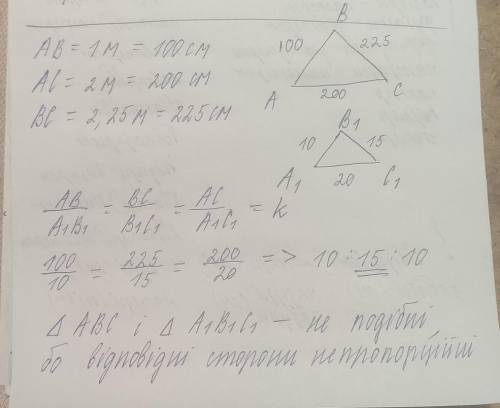 AB = 1 м = 100 см
AC = 2 м = 200 см
BC = 2,25 м = 225 см
B
100
225
A
200
C
B1
10
15
A1
20
C1
AB/A1B1 = BC/B1C1 = AC/A1C1 = k
100/10 = 225/15 = 200/20 => 10 : 15 : 10
Δ ABC і Δ A1B1C1 – не подібні,
бо відповідні сторони непропорційні